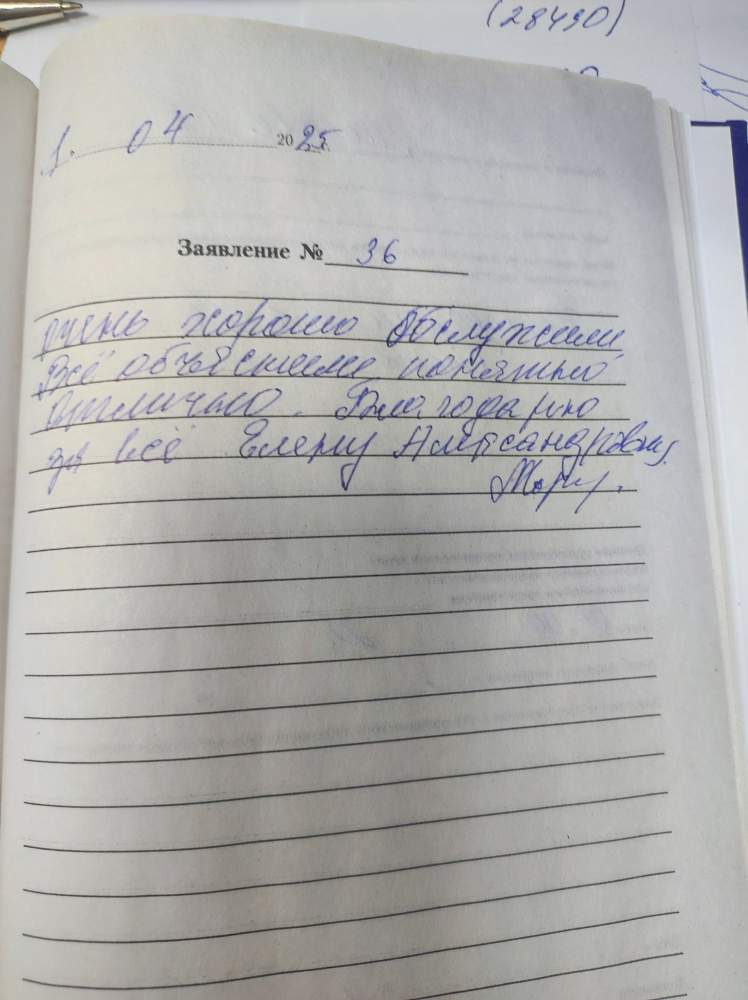 (28490)
1. 04 2025 г.
Заявление № 36
очень хорошо обслужили
Всё объяснили понятно
отлично. Благодарю
за всё Елену Александровну.